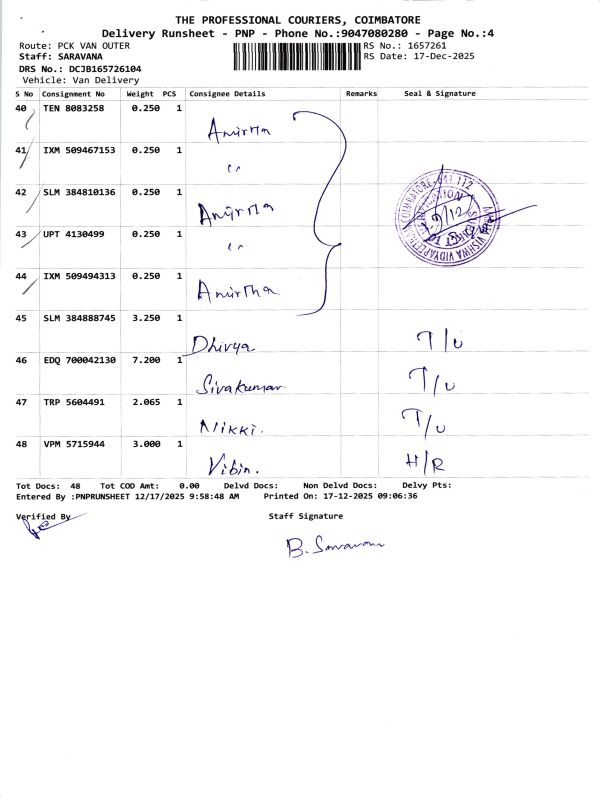 THE PROFESSIONAL COURIERS, COIMBATORE
Delivery Runsheet - PNP - Phone No.:9047080280 - Page No.:4
Route: PCK VAN OUTER RS No.: 1657261
Staff: SARAVANA RS Date: 17-Dec-2025
DRS No.: DCJB165726104
Vehicle: Van Delivery
S No Consignment No Weight PCS Consignee Details Remarks Seal & Signature
40 TEN 8083258 0.250 1 Amirtha
41 IXM 509467153 0.250 1 "
42 SLM 384810136 0.250 1 Amirtha
43 UPT 4130499 0.250 1 "
44 IXM 509494313 0.250 1 Amirtha
45 SLM 384888745 3.250 1 Dhivya T/U
46 EDQ 700042130 7.200 1 Sivakumar. T/U
47 TRP 5604491 2.065 1 Nikki. T/U
48 VPM 5715944 3.000 1 Vibin. H/R
Tot Docs: 48 Tot COD Amt: 0.00 Delvd Docs: Non Delvd Docs: Delvy Pts:
Entered By :PNPRUNSHEET 12/17/2025 9:58:48 AM Printed On: 17-12-2025 09:06:36
Verified By Staff Signature
B. Saravana